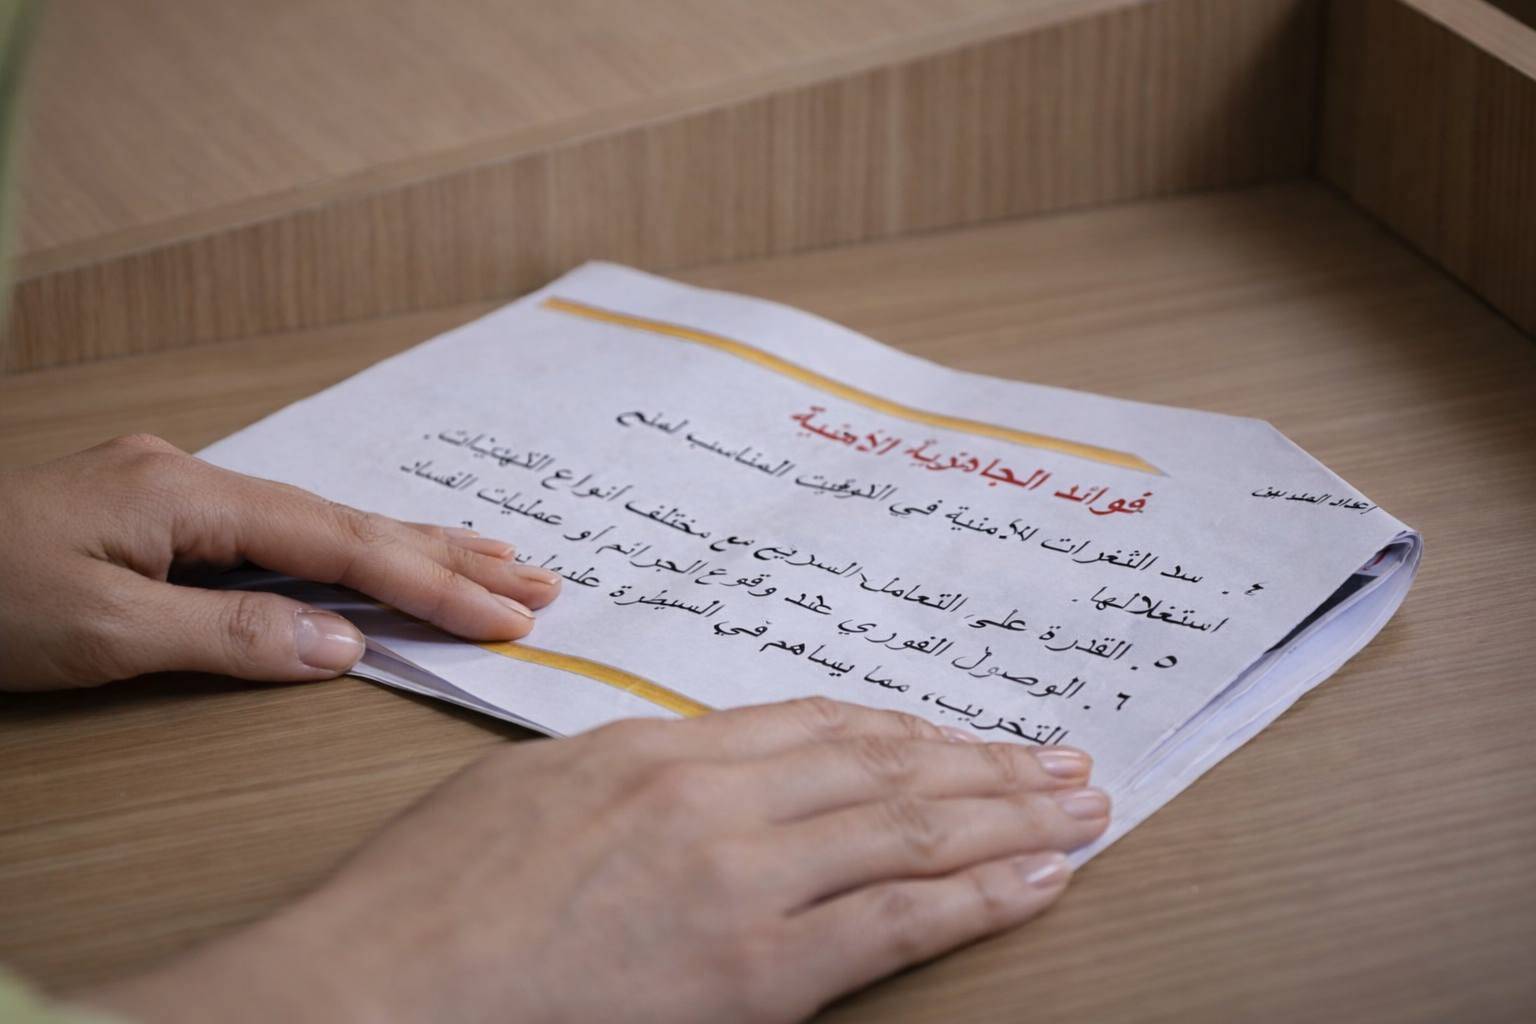 فوائد الجاهزية الأمنية
إعداد المدربين
٤. سد الثغرات الأمنية في التوقيت المناسب لمنع
استغلالها.
٥. القدرة على التعامل السريع مع مختلف أنواع التهديدات.
٦. الوصول الفوري عند وقوع الجرائم أو عمليات الفساد
التخريب، مما يساهم في السيطرة عليها